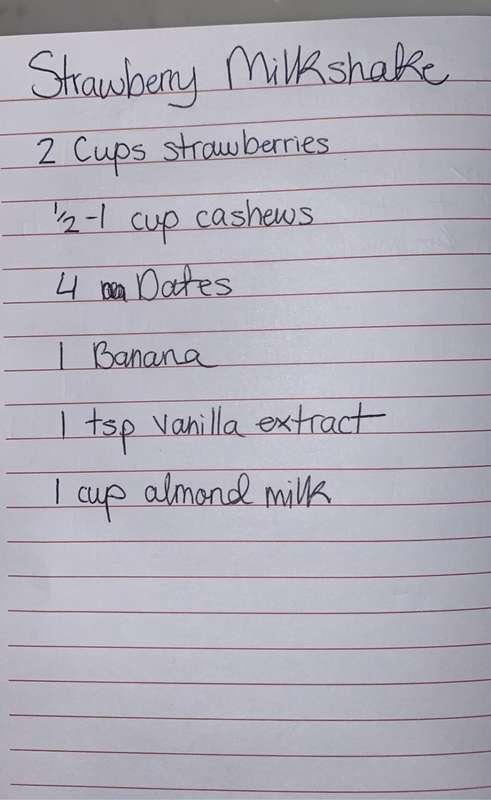 Strawberry Milkshake
2 Cups strawberries
1/2-1 cup cashews
4 Dates
1 Banana
1 tsp vanilla extract
1 cup almond milk